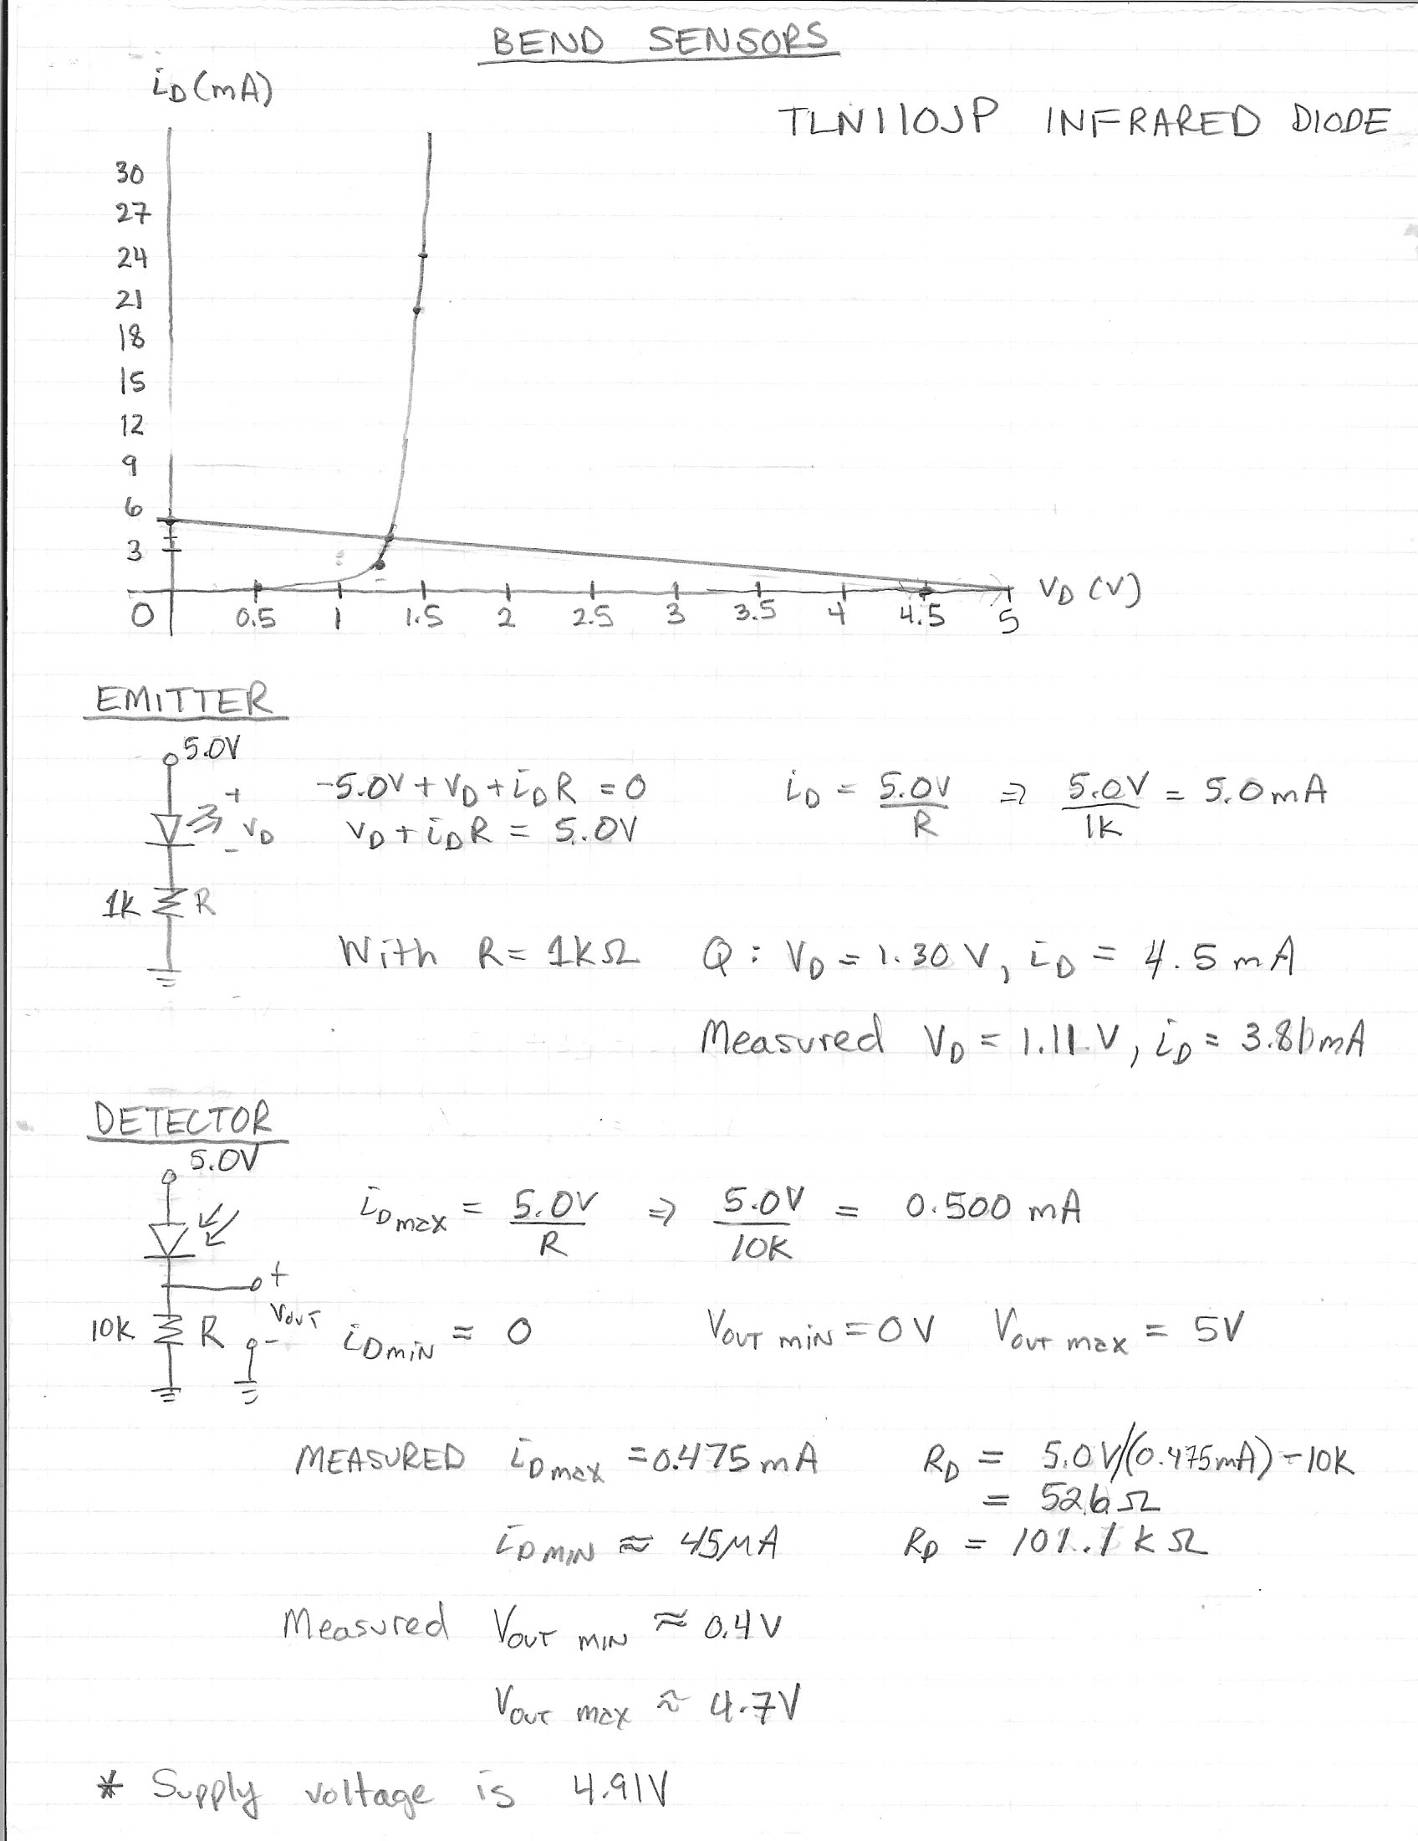 BEND SENSORS
iD (mA)
TLN110JP INFRARED DIODE
30
27
24
21
18
15
12
9
6
3
0 0.5 1 1.5 2 2.5 3 3.5 4 4.5 5 VD (V)
EMITTER
5.0V
-5.0V + VD + iDR = 0
iD = 5.0V/R ⇒ 5.0V/1K = 5.0mA
+ VD -
VD + iDR = 5.0V
1K R
With R = 1KΩ Q: VD = 1.30 V, iD = 4.5 mA
Measured VD = 1.11 V, iD = 3.81mA
DETECTOR
5.0V
iDmax = 5.0V/R ⇒ 5.0V/10K = 0.500 mA
+
VOUT
-
10K R
iDmin = 0 VOUT min = 0V VOUT max = 5V
MEASURED iDmax = 0.475mA RD = 5.0V/(0.475mA) - 10K
= 526Ω
iDMIN ≈ 45µA RD = 101.1 KΩ
Measured VOUT MIN ≈ 0.4V
VOUT max ≈ 4.7V
* Supply voltage is 4.91V